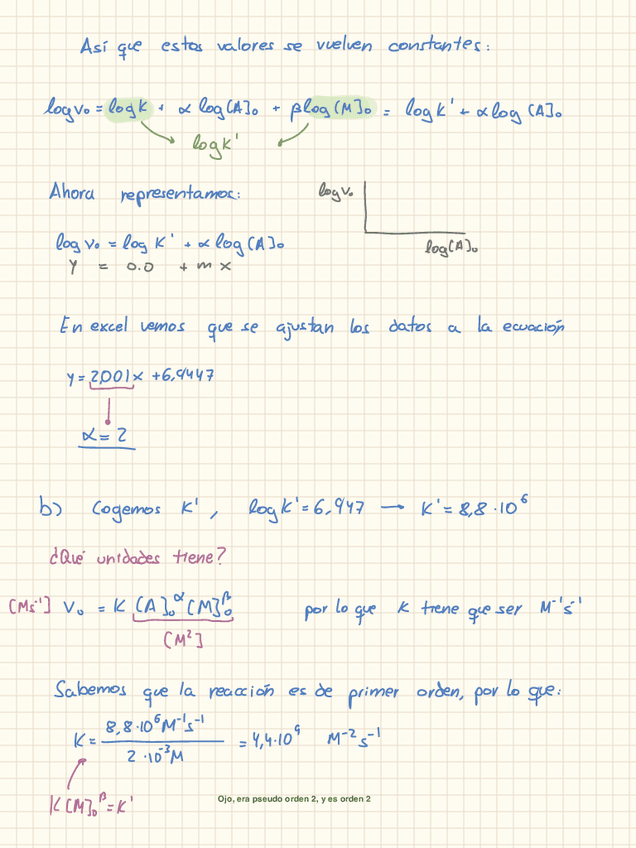 Así que estos valores se vuelven constantes:
log v₀ = log K + α log [A]₀ + β log [M]₀ = log K' + α log [A]₀
log K'
Ahora representamos:
log v₀
log [A]₀
log v₀ = log K' + α log [A]₀
y = o.o + m x
En excel vemos que se ajustan los datos a la ecuación
y = 2,001x + 6,9447
α = 2
b) Cogemos K', log K' = 6,947 → K' = 8,8·10⁶
¿Qué unidades tiene?
[Ms⁻¹] V₀ = K [A]₀^α [M]₀^β por lo que K tiene que ser M⁻¹s⁻¹
[M²]
Sabemos que la reacción es de primer orden, por lo que:
K = 8,8·10⁶ M⁻¹s⁻¹ / 2·10⁻³ M = 4,4·10⁹ M⁻² s⁻¹
K [M]₀^β = K'
Ojo, era pseudo orden 2, y es orden 2